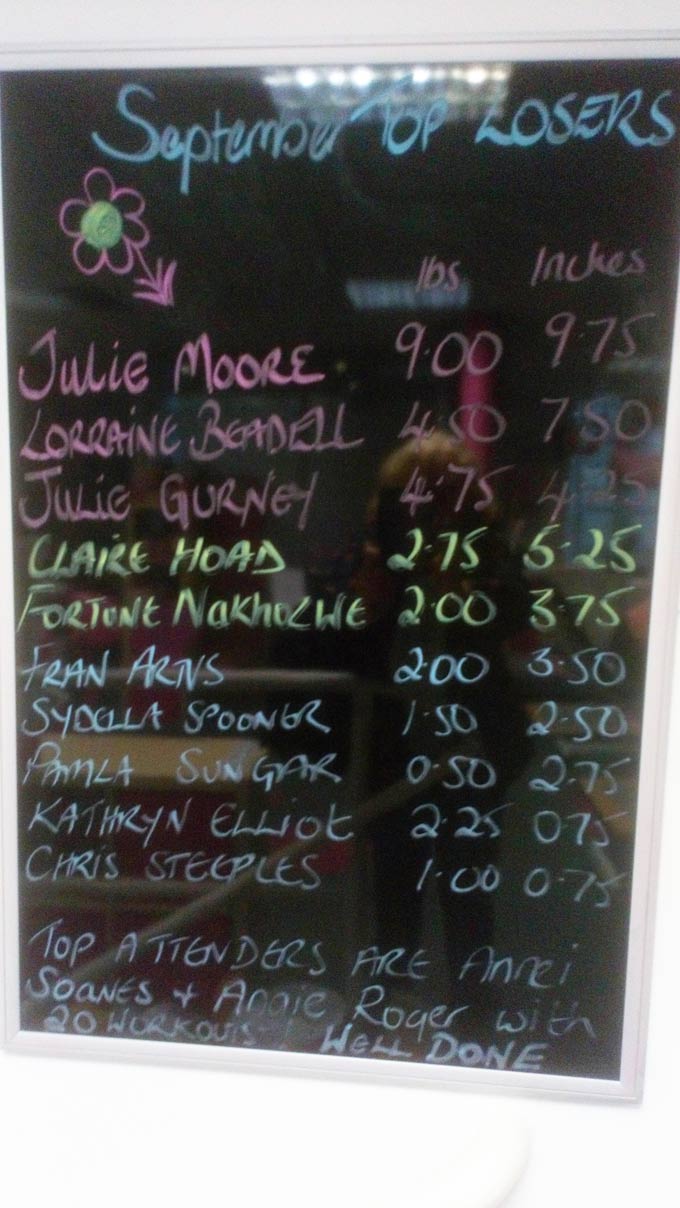 September TOP LOSERS
lbs Inches
JULIE MOORE 9.00 9.75
LORRAINE BEADELL 4.50 7.50
JULIE GURNEY 4.75 4.25
CLAIRE HOAD 2.75 5.25
FORTUNE NAKHOLWE 2.00 3.75
FRAN ARNS 2.00 3.50
SYDELLA SPOONER 1.50 2.50
PAMLA SUNGAR 0.50 2.75
KATHRYN ELLIOT 2.25 0.75
CHRIS STEEPLES 1.00 0.75
TOP ATTENDERS ARE
SOANES + Angie Roger with
20 WORKOUTS WELL DONE